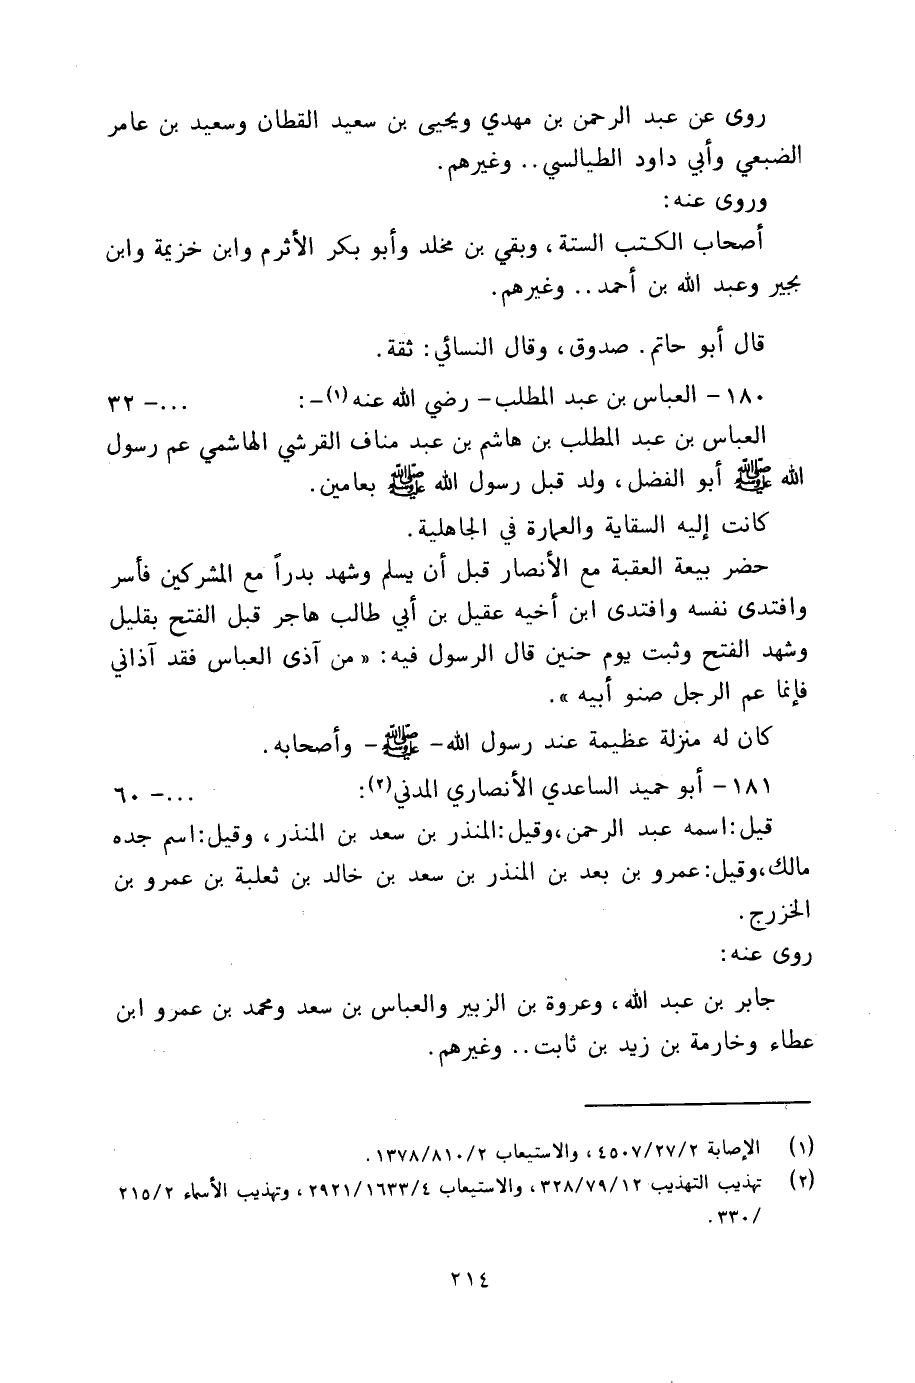 روى عن عبد الرحمن بن مهدي ويحيى بن سعيد القطان وسعيد بن عامر
الضبعي وأبي داود الطيالسي .. وغيرهم .
وروى عنه :
أصحاب الكتب الستة ، وبقي بن مخلد وأبو بكر الأثرم وابن خزيمة وابن
بجير وعبد الله بن أحمد .. وغيرهم .
قال أبو حاتم . صدوق ، وقال النسائي : ثقة .
١٨٠ - العباس بن عبد المطلب - رضي الله عنه (١) - : ... - ٣٢
العباس بن عبد المطلب بن هاشم بن عبد مناف القرشي الهاشمي عم رسول
الله ﷺ أبو الفضل ، ولد قبل رسول الله ﷺ بعامين .
كانت إليه السقاية والعمارة في الجاهلية .
حضر بيعة العقبة مع الأنصار قبل أن يسلم وشهد بدراً مع المشركين فأسر
وافتدى نفسه وافتدى ابن أخيه عقيل بن أبي طالب هاجر قبل الفتح بقليل
وشهد الفتح وثبت يوم حنين قال الرسول فيه : « من آذى العباس فقد آذاني
فإنما عم الرجل صنو أبيه » .
كان له منزلة عظيمة عند رسول الله - ﷺ - وأصحابه .
١٨١ - أبو حميد الساعدي الأنصاري المدني (٢) : ... - ٦٠
قيل : اسمه عبد الرحمن ، وقيل : المنذر بن سعد بن المنذر ، وقيل : اسم جده
مالك ، وقيل : عمرو بن بعد بن المنذر بن سعد بن خالد بن ثعلبة بن عمرو بن
الخزرج .
روى عنه :
جابر بن عبد الله ، وعروة بن الزبير والعباس بن سعد ومحمد بن عمرو ابن
عطاء وخارمة بن زيد بن ثابت .. وغيرهم .
(١) الإصابة ٤٥٠٧/٢٧/٢ ، والاستيعاب ١٣٧٨/٨١٠/٢ .
(٢) تهذيب التهذيب ٣٢٨/٧٩/١٢ ، والاستيعاب ٢٩٢١/١٦٣٣/٤ ، وتهذيب الأسماء ٢١٥/٢
/٣٣٠ .
٢١٤